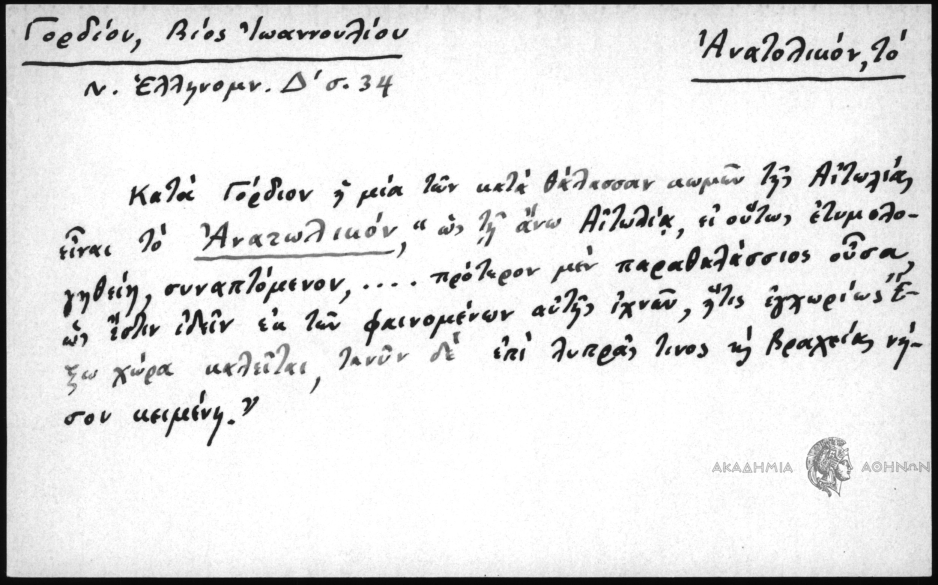 Γορδίου, Βίος Ἰωαννουλίου
Ἀνατολικόν, τό
Ν. Ἑλληνομν. Δ΄ σ. 34
Κατά Γόρδιον ἡ μία τῶν κατά θάλασσαν κωμῶν τῆς Αἰτωλίας
εἶναι τό Ἀνατωλικόν, "ὡς τῇ ἄνω Αἰτωλίᾳ, εἰ οὕτως ἐτυμολο-
γηθείη, συναπτόμενον, .... πρότερον μέν παραθαλάσσιος οὖσα,
ὡς ἔστιν ἰδεῖν ἐκ τῶν φαινομένων αὐτῆς ἰχνῶν, ἥτις ἐγχωρίως Ἔ-
ξω χώρα καλεῖται, τανῦν δέ ἐπί λυπρᾶς τινος κ̀ βραχείας νή-
σου κειμένη."
ΑΚΑΔΗΜΙΑ ΑΘΗΝΩΝ